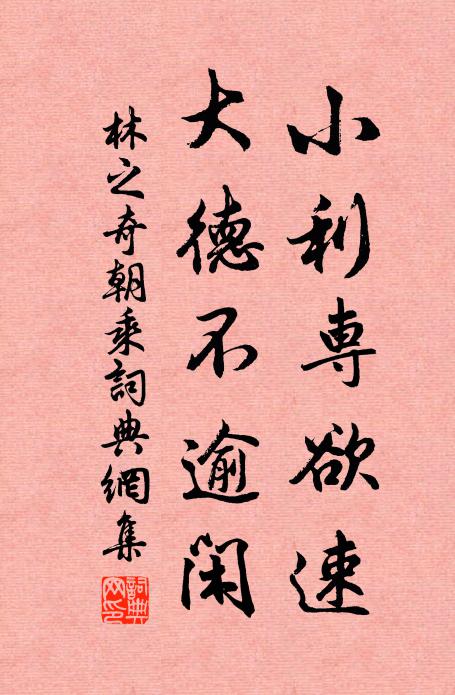 小利専欲速
大德不逾闲
林之奇朝乘詞典網集
詞典网印